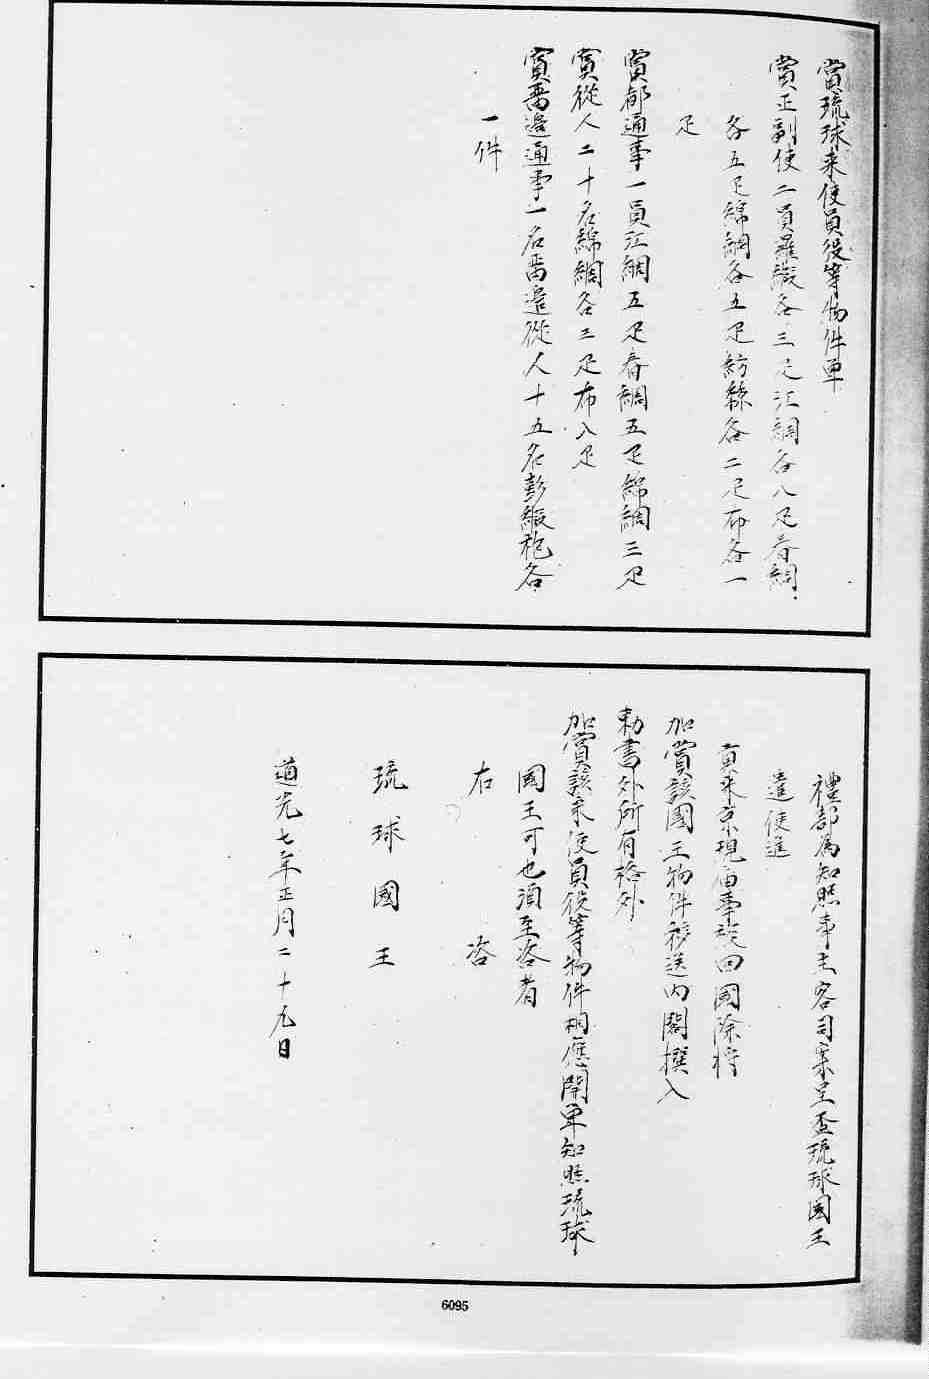 賞琉球來使員役等物件單
賞正副使二員羅緞各三疋江綢各八疋春綢
各五疋綿綢各五疋紡絲各二疋布各一
疋
賞都通事一員江綢五疋春綢五疋綿綢三疋
賞從人二十名綿綢各三疋布八疋
賞留邊通事一名留邊從人十五名彭緞袍各
一件
禮部為知照事主客司案呈查琉球國王
遣使進
貢來京現届事竣回國除將
加賞該國王物件移送内閣撰入
勅書外所有格外
加賞該來使員役等物件相應開單知照琉球
國王可也須至咨者
右咨
琉球國王
道光七年正月二十九日
6095